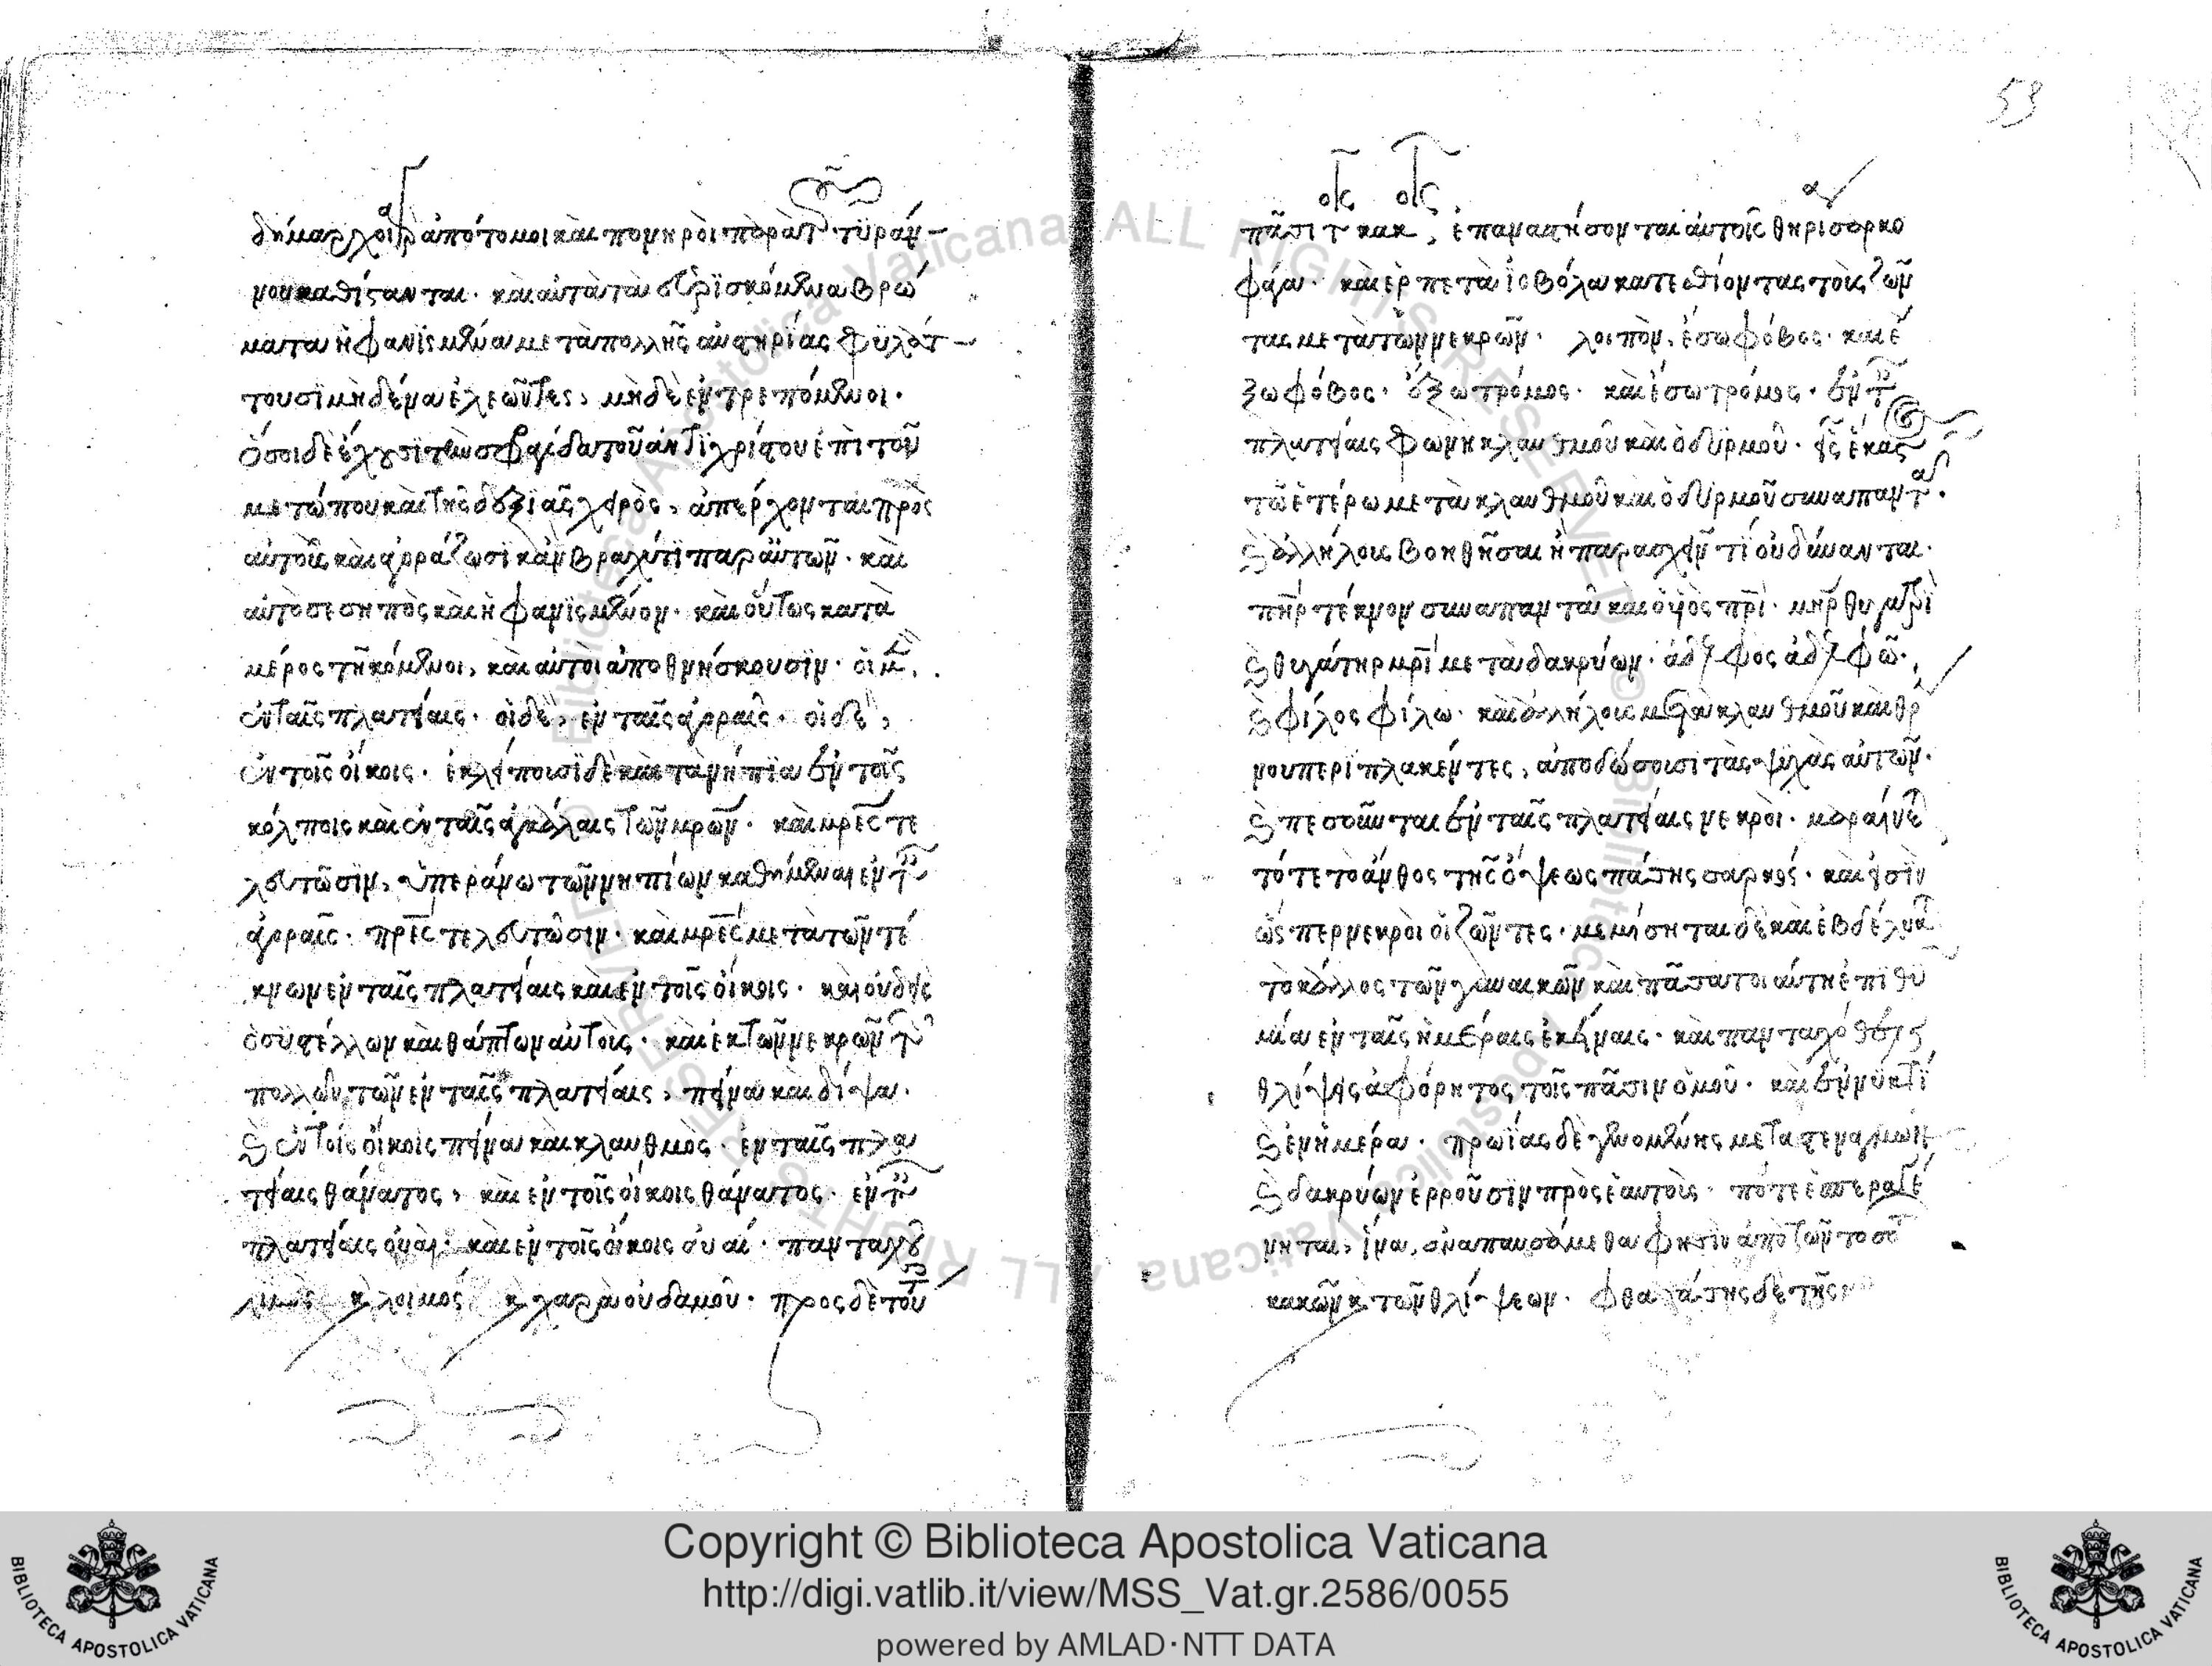 53
δήμαρχοι γὰρ ἀπότομοι καὶ πονηροὶ παρὰ τοῦ τυράν-
νου καθίσανται· καὶ αὐτὰ τὰ εὑρϊσκόμενα βρώ
ματα ἠφανϊσμένα μετὰ πολλῆς αὐστηρίας φυλάτ-
τουσϊ μηδένα ἐλεῶντες, μηδὲ ἐντρεπόμενοι.
ὅσοι δὲ ἔχουσϊ τὴν σφραγίδα τοῦ ἀντϊχρίστου ἐπὶ τοῦ
μετώπου καὶ τῆς δεξιᾶς χειρὸς, ἀπέρχονται πρὸς
αὐτοὺς καὶ ἀγοράζωσϊ κἂν βραχύ τϊ παρ αὐτῶν· καὶ
αὐτὸ σεσηπὸς καὶ ἠφανϊσμένον· καὶ οὕτως κατὰ
μέρος τηκόμενοι, καὶ αὐτοὶ ἀποθνήσκουσϊν· οἱ μὲν,
ἐν ταῖς πλατείαις· οἱ δὲ, ἐν ταῖς ἀγοραῖς· οἱ δὲ,
ἐν τοῖς οἴκοις· ἐκλείπουσϊ δὲ καὶ τὰ νήπϊα ἐν τοῖς
κόλποις καὶ ἐν ταῖς ἀγκάλαις τῶν μρῶν· καὶ μρες τε
λευτῶσϊν, ὑπεράνω τῶν νηπίων καθήμεναι ἐν ταῖς
ἀγοραῖς· πρες τελευτῶσιν· καὶ μρες μετὰ τῶν τέ
κνων ἐν ταῖς πλατείαις καὶ ἐν τοῖς οἴκοις· καὶ οὐδεὶς
ὁ συστέλλων καὶ θάπτων αὐτοὺς· καὶ ἐκ τῶν νεκρῶν τῶν
πολλῶν τῶν ἐν ταῖς πλατείαις, πεῖνα καὶ δίψα·
καὶ ἐν τοῖς οἴκοις πεῖνα καὶ κλαυθμὸς· ἐν ταῖς πλα
τείαις θάνατος, καὶ ἐν τοῖς οἴκοις θάνατος· ἐν ταῖς
πλατείαις οὐαὶ· καὶ ἐν τοῖς οἴκοις οὐαί· πανταχοῦ
λιμὸς κ λοιμὸς κ χαρὰ οὐδαμοῦ· πρὸς δὲ τούτοις
πᾶσι τοῖς κακοῖς, ἐπαναστήσονται αὐτοῖς θηρία σαρκο
φάγα· καὶ ἑρπετὰ ἰοβόλα κατεσθίοντας τοὺς ζῶν
τας μετὰ τῶν νεκρῶν· λοιπὸν, ἔσω φόβος· καὶ ἔ
ξω φόβος· ἔξω τρόμος· καὶ ἔσω τρόμος· ἐν ταῖς
πλατείαις φωνὴ κλαυθμοῦ καὶ ὀδυρμοῦ· εἷς ἕκαστος
τῶ ἑτέρω μετὰ κλαυθμοῦ καὶ ὀδυρμοῦ συναπαντᾶ.
καὶ ἀλλήλοις βοηθῆσαι ἢ παρασχεῖν τϊ οὐ δύνανται·
πηρ τέκνον συναπαντᾶ καὶ ὁ υἱὸς πρι· μηρ θυγατρὶ
καὶ θυγάτηρ μρι μετὰ δακρύων· ἀδελφὸς ἀδελφῶ·
καὶ φίλος φίλω· καὶ ἀλλήλοις μετὰ κλαυθμοῦ καὶ θρή
νου περιπλακέντες, ἀποδώσουσι τὰς ψυχὰς αὐτῶν·
καὶ πεσοῦνται ἐν ταῖς πλατείαις νεκροὶ· μαραίνεται
τότε τὸ ἄνθος τῆς ὄψεως πάσης σαρκός· καὶ εἰσὶν
ὥσπερ νεκροὶ οἱ ζῶντες· μεμίσηται δὲ καὶ ἐβδέλυκται
τὸ κάλλος τῶν γυναικῶν καὶ πᾶσα τοιαύτη ἐπϊθυ
μία ἐν ταῖς ἡμέραις ἐκείναις· καὶ πανταχόθεν
θλίψις ἀφόρητος τοῖς πᾶσιν ὁμοῦ· καὶ ἐν νυκτϊ
καὶ ἐν ἡμέρα· πρωίας δὲ γενομένης μετὰ στεναγμῶν
καὶ δακρύων ἐρροῦσϊν πρὸς ἑαυτοὺς· πότε ἑσπέρα γέ
νηται, ἵνα ἀναπαυσώμεθα φησϊν ἀπὸ τῶν τοσούτων
κακῶν κ τῶν θλίψεων· φθασάσης δὲ τῆς
Copyright © Biblioteca Apostolica Vaticana
http://digi.vatlib.it/view/MSS_Vat.gr.2586/0055
powered by AMLAD·NTT DATA
BIBLIOTECA APOSTOLICA VATICANA
BIBLIOTECA APOSTOLICA VATICANA